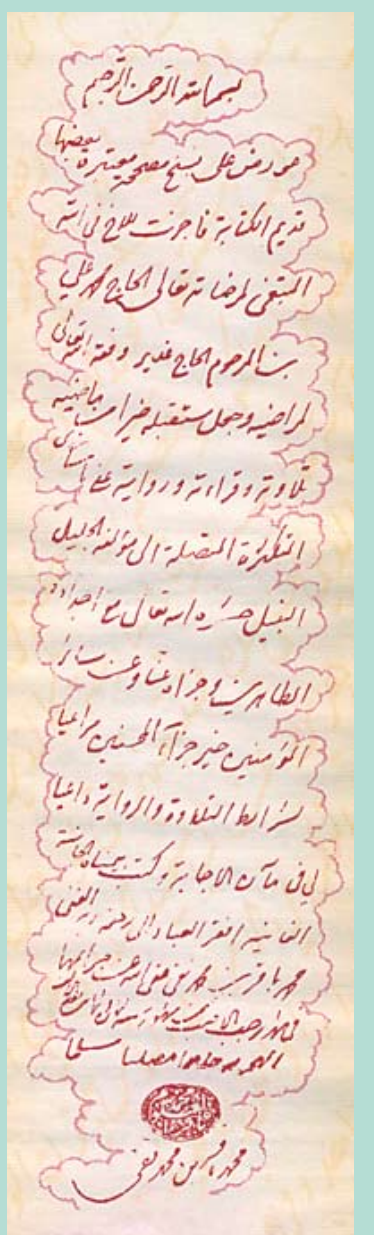 بسم الله الرحمن الرحيم
عورض على نسخ مصححة معتبرة بعضها
قديم الكتابة فأجزت للأخ في الله
المبتغي لمرضاته تعالى الحاج محمد علي
بن المرحوم الحاج غدير وفقه الله تعالى
لمراضيه وجعل مستقبله خيرا من ماضيه
تلاوته وقراءته وروايته عني
المتكثرة المتصلة الى مؤلفه الجليل
النبيل حشره الله تعالى مع اجداده
الطاهرين وجزاه عنا وعن سائر
المؤمنين خير جزاء المحسنين مراعيا
لشرائط التلاوة والرواية داعيا
لي في مآن الاجابة وكتب بيمناه الجانية
الفانية افقر العباد الى رحمة ربه الغني
محمد باقر بن محمد تقي عفى الله عن جرائمهما
في شهر رجب الاصب من شهور سنة
مصليا مسلما
محمد باقر بن محمد تقي